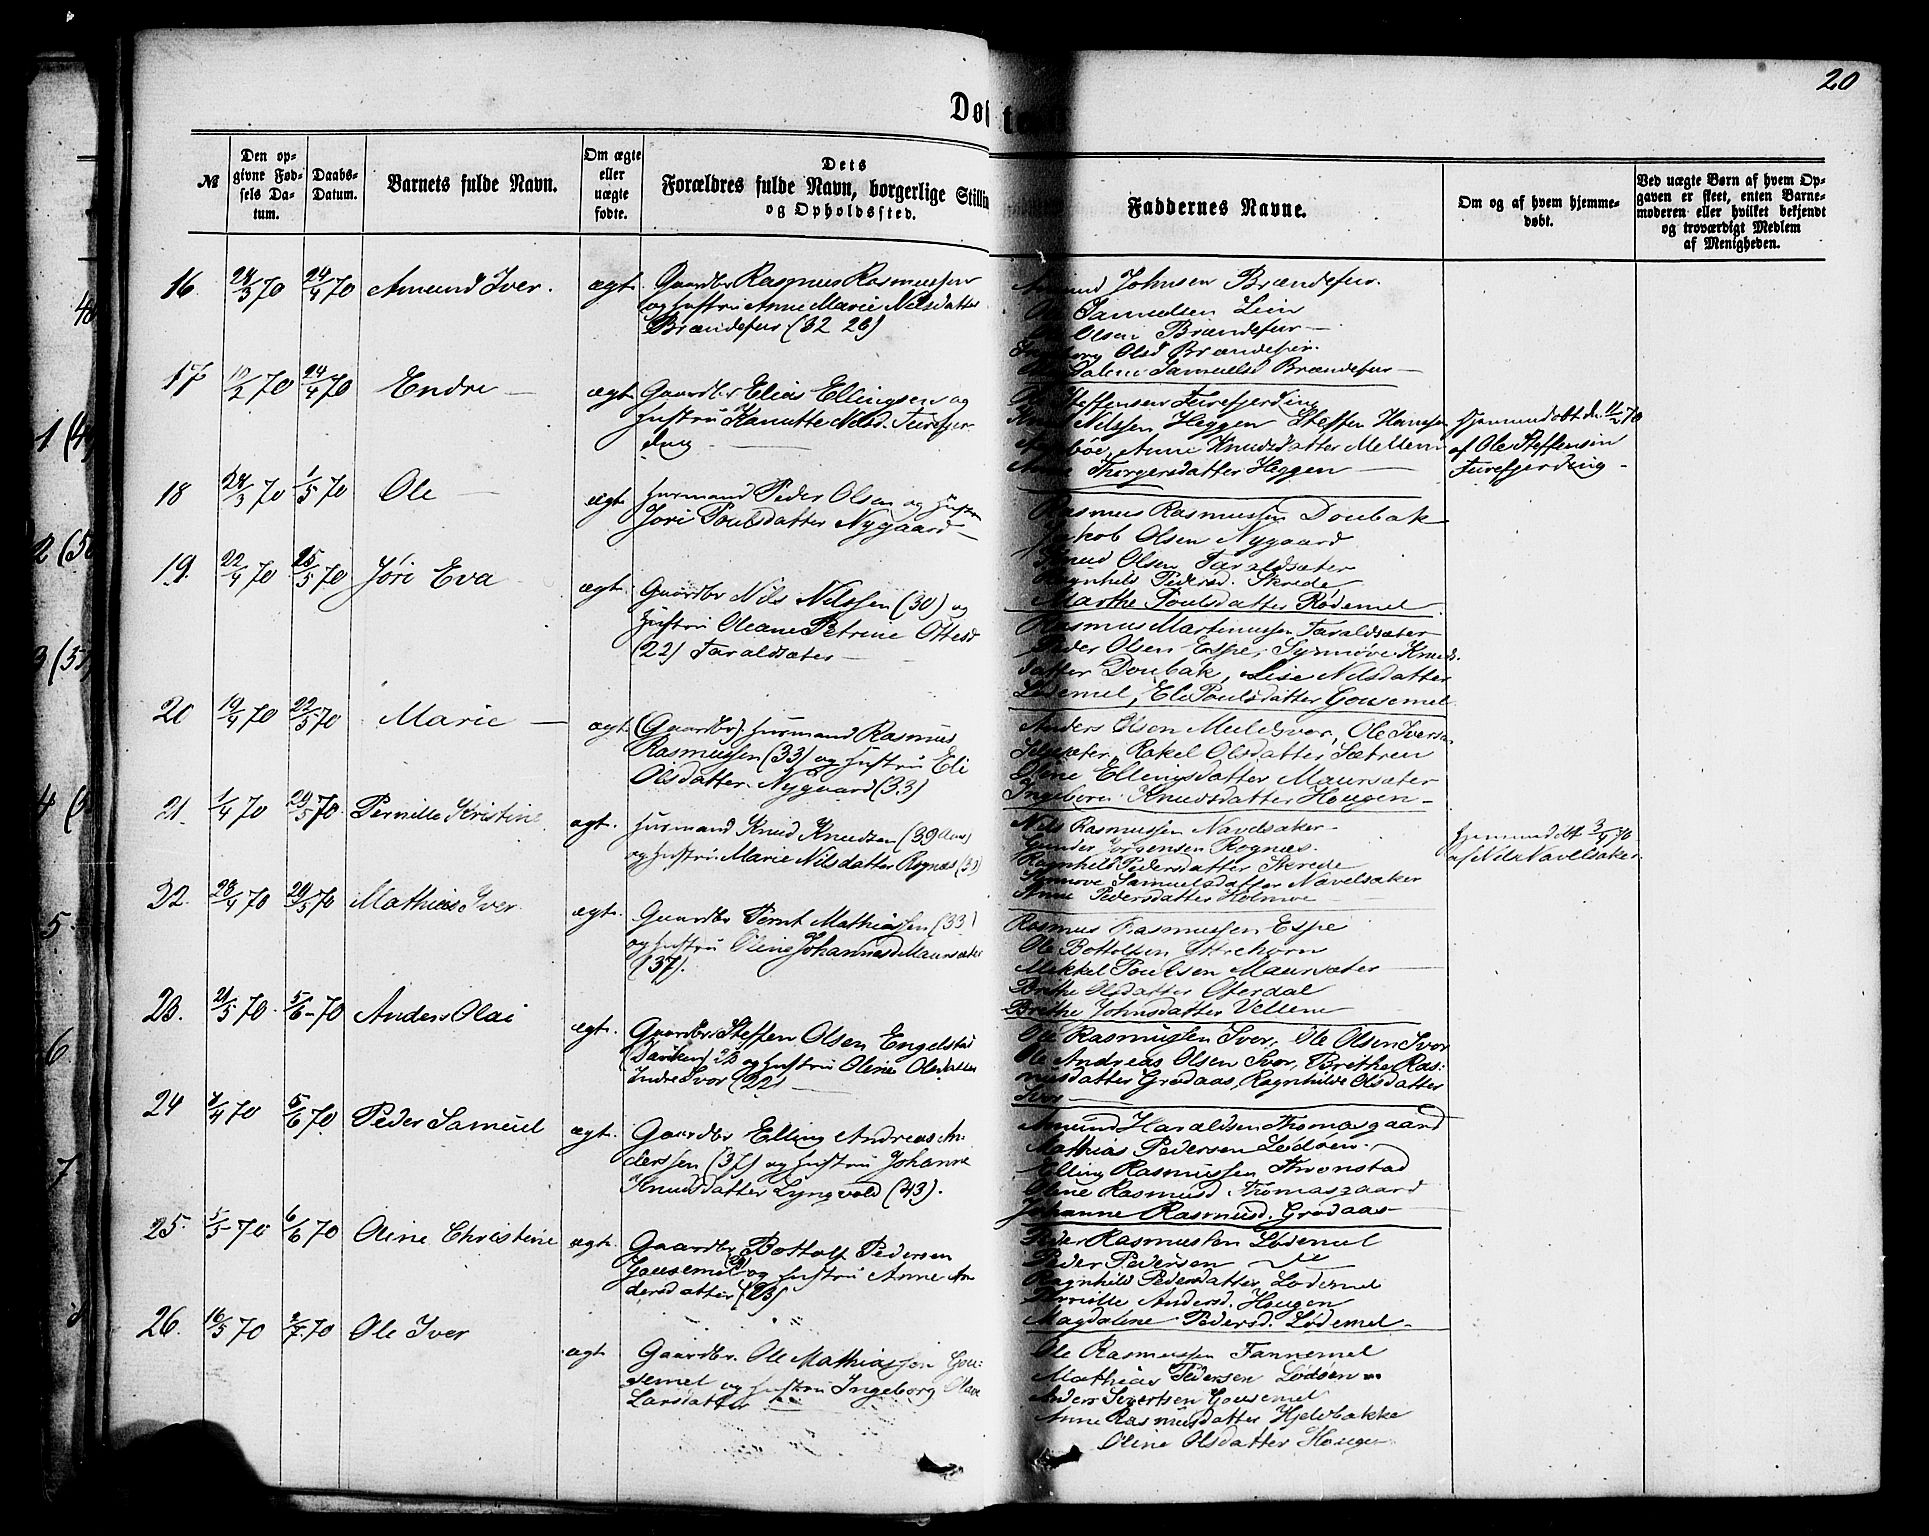 20
Døb
te
№
Den op-
givne Fød-
sels Da-
tum.
Daabs-
Datum.
Barnets fulde Navn.
Om ægte
eller
uægte
fødte.
Dets
Forældres fulde Navn, borgerlige Stillin
og Opholdssted.
Faddernes Navne.
Om og af hvem hjemme-
døbt.
Ved uægte Børn af hvem Op-
gaven er skeet, enten Barne-
moderen eller hvilket bekjendt
og troværdigt Medlem
af Menigheden.
16. 24/4 70 Amund Iver. ægt.
Gaardbr Rasmus Rasmussen
og Hustru Anne Marie Nilsdatter
Brændefur (32 28)
Johnsen Brændefur.
Samuelsen Lein
Olsen Brændefur
Olsd Brændefur.
Samuelsd Brændefur
17 12/2 70 24/4 70 Endre ægt.
Gaardbr Elias Ellingsen og
Hustru Nilsd. Furefjor
ding
Steffensen Furefjerding
Nilssen Heggen Steffen Hanssen
Anne Knudsdatter Mellem
Thorgersdatter Heggen
Hjemmedøbt d. 11/2 70
af Ole Steffensen
Furefjerding
18 1/5 70 Ole ægt.
Husmand Peder Olsen og Hustru
Jóri Poulsdatter Nygaard
Rasmus Rasmussen Doubak
Jakob Olsen Nygaard
Knud Olsen Taraldsæter
Ragnhild Pedersd. Skrede
Marthe Poulsdatter Rødemel
19. 22/4 70 Jóri Eva ægt.
Gaardbr Nils Nilssen (30) og
Hustru Oleane Petrine Ottesd
(22) Taraldsæter
Rasmus Martinussen Taraldsæter
Peder Olsen Espe, Synnøve Knuds
datter Doubak, Lise Nilsdatter
Lødemel, Eli Poulsdatter Gausemel
20 19/4 70 22/5 70 Marie ægt.
(Gaardbr). Husmand Rasmus
Rasmussen (33) og Hustru Eli
Olsdatter Nygaard (33)
Anders Olsen Muldsvor, Ole Iversen
Rakel Olsdatter Sætren
Ellingsdatter Maursæter
Ingeborg Knudsdatter Hougen
21. 1/4 70 29/5 70. Pernille Kristine ægt.
Husmand Knud Knudsen (39)
og Hustru Marie Nilsdatter Rognæs (39)
Nils Rasmussen Navelsaker
Gunder Jørgensen Rognæs.
Ragnhild Pedersdatter Skrede
Synnøve Samuelsdatter Navelsaker
Anne Pedersdatter Holmøe
Hjemmedøbt 3/4 70
af Nils Navelsaker
22. 23/4 70 29/5 70 Mathias Iver ægt.
Gaardbr Bernt Mathiassen (33)
og Hustru Oline Johannesd Maursæter
(37).
Rasmus Rasmussen Espe
Ole Bottolfsen Yttrehorn
Mikkel Poulsen Maursæter
Brithe Olsdatter Oterdal
Brithe Johnsdatter Vellene
23. 21/5 70. 5/6 70 Anders Olai ægt.
Gaardbr Steffen Olsen Engelstad
(Daviken) 28 og Hustru Oline Olsdatter
Indre Svor (22)
Ole Rasmussen Svor, Ole Olsen Svor
Ole Andreas Olsen Svor, Brethe Ras-
musdatter Grødaas, Ragnhilde Olsdatter
Svor
24 4/4 70 5/6 70 Peder Samuel ægt.
Gaardbr Elling Andreas An-
derssen (37) og Hustru Johanne
Knudsdatter Lyngvold (43).
Amund Haraldsen Thomasgaard
Mathias Pedersen Lødøen
Elling Rasmussen Thronstad
Oline Rasmusd. Thomasgaard
Johanne Rasmusd. Grødaas
25. 5/5 70 6/6 70 Oline Christine ægt.
Gaardbr Bottolf Pedersen
Gausemel og Hustru Anne An-
dersdatter (23)
Peder Rasmussen Lødemel
Peder Pedersen
Ragnhild Pedersdatter Lødemel
Pernille Andersd. Hougen
Magdalene Pedersd. Lødemel
26. 16/5 70 2/7 70 Ole Iver ægt
Gaardbr. Ole Mathiassen Gau-
semel og Hustru Ingeborg Olave
Larsdatter
Ole Rasmussen Fannemel
Mathias Pedersen Lødøen
Anders Sivertsen Gausemel
Anne Rasmusdatter Hjelvbakke
Oline Olsdatter Hougen